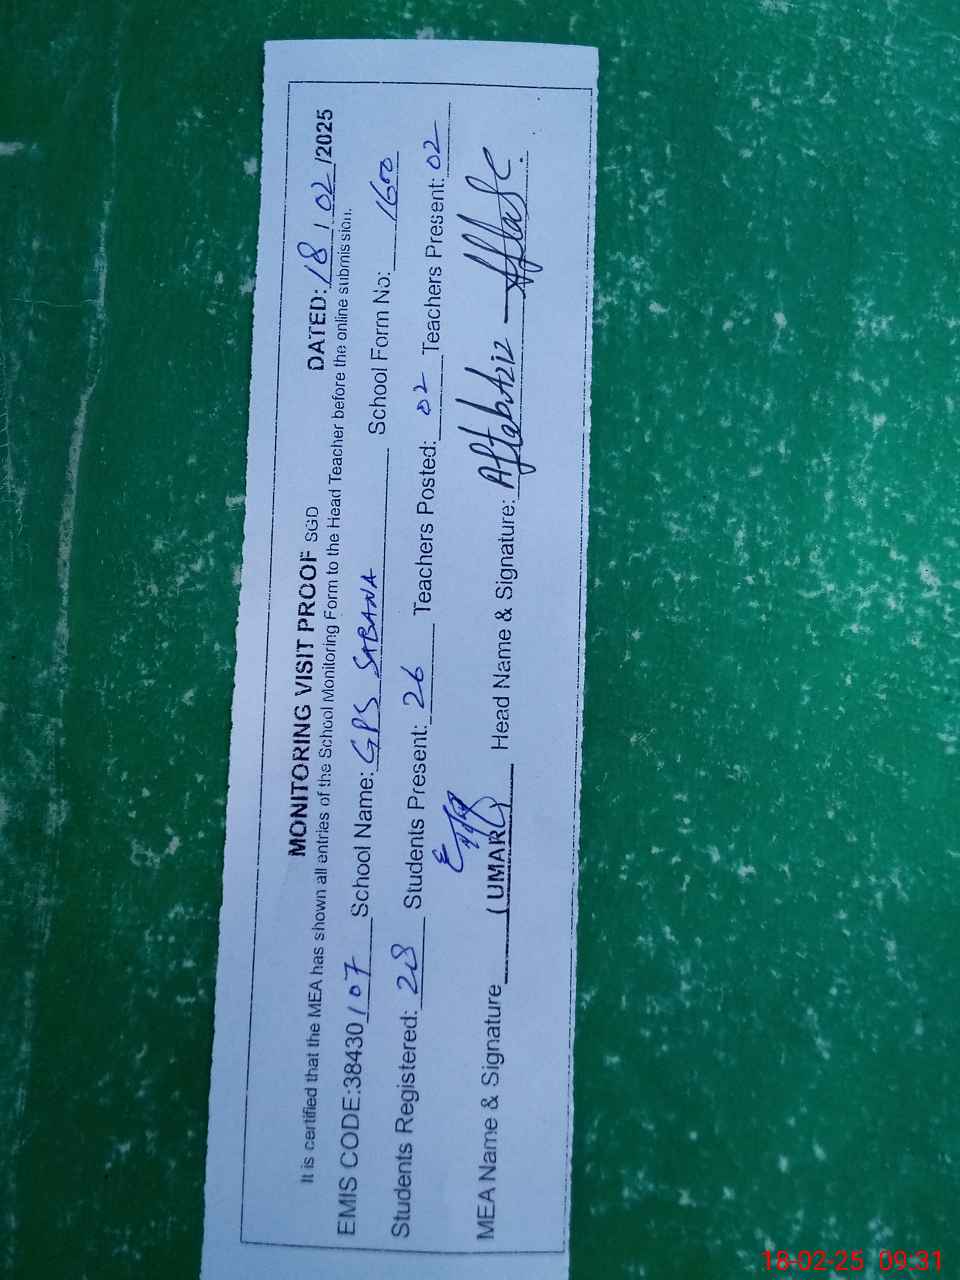 MONITORING VISIT PROOF SGD DATED: 18/02/2025
It is certified that the MEA has shown all entries of the School Monitoring Form to the Head Teacher before the online submission.
EMIS CODE:38430107 School Name: GPS SABANA School Form No: 1600
Students Registered: 28 Students Present: 26 Teachers Posted: 02 Teachers Present: 02
MEA Name & Signature (UMAR) Head Name & Signature: Aftab Aziz
18-02-25 09:31